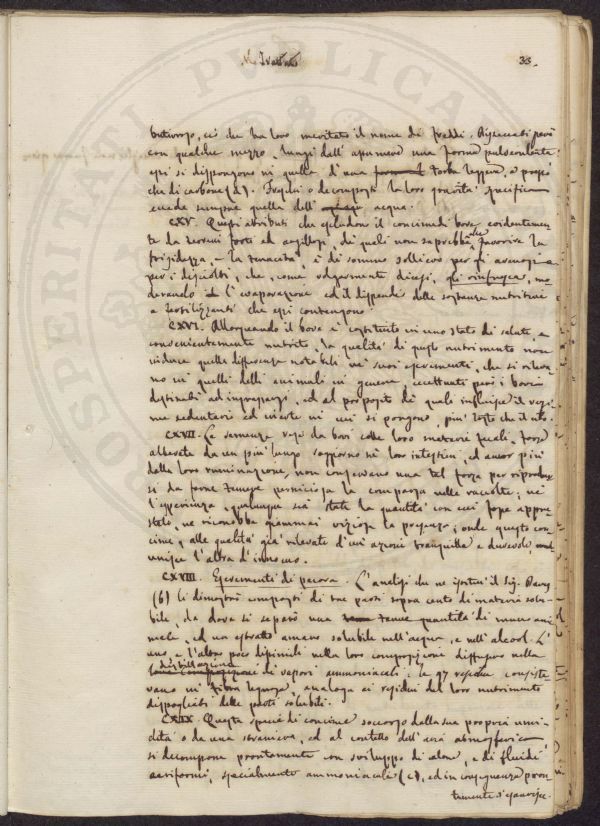 33.
butirroso, ciò che ha loro meritato il nome di freddi. Disseccati però
con qualche mezzo, lungi dall' assumere una forma pulverulenta
essi si dispongono in quella d'una torba leggera, o
che di carbone (a). Freschi o decomposti la loro gravità specifica
eccede sempre quella dell' acqua.
CXV. Questi attributi che escludono il concime di bove evidentemen-
te da terreni forti ed argillosi, di quali non saprebbe che favorire la
frigidezza, e la tenacità, è di sommo sollievo per gli arenosi e
per i disciolti, che, come volgarmente dicesi, gli rinfresca, mo-
derando l'evaporazione ed il dispendio delle sostanze nutritive
e fertilizzanti che essi contengono.
CXVI. Allorquando il bove è costituito in uno stato di salute e
convenientemente nutrito, la qualità di questo nutrimento non
induce quelle differenze notabili ne' suoi escrementi, che si rileva-
no in quelli delli animali in genere, eccettuati però i bovi
destinati ad ingrassarsi, ed al proposito di quali influisce il regi-
me sedentario ed inerte in cui si pongono, più tosto che il cibo.
CXVII. Le semenze rese da bovi colle loro materie fecali, forse
alterate da un più lungo soggiorno ne' loro intestini, ed ancor più
dalla loro ruminazione, non conservano una tal forza per riprodur-
si da farne temere perniciosa la comparsa nelle raccolte; nè
l'esperienza, qualunque sia stata la quantità con cui fosse appre-
stato, ne riconobbe giammai viziosa la presenza; onde questo con-
cime, alle qualità già rilevate d'un azione tranquilla e durevole,
unisce l'altra d'innocuo.
CXVIII. Escrementi di pecora. L'analisi che ne istituì il Sig. Davy
(b) le dimostrò composte di tre parti sopra cento di materia solu-
bile, da dove si separò una tenue quantità di muco ani-
male, ed un estratto amaro solubile nell'acqua, e nell'alcool. L'
uno, e l'altro poco dissimili nella loro composizione diffusero nella
distillazione di vapori ammoniacali: le 97 residue consiste-
vano in fibra legnosa, analoga ai residui del loro nutrimento
dispogliati delle parti solubili.
CXIX. Questa specie di concime soccorso dalla sua propria umi-
dità o da una straniera, ed al contatto dell'aria atmosferica
si decompone prontamente con sviluppo di calore, e di fluidi
aeriformi, specialmente ammoniacali (c), ed in conseguenza pron-
tamente s'esaurisce.